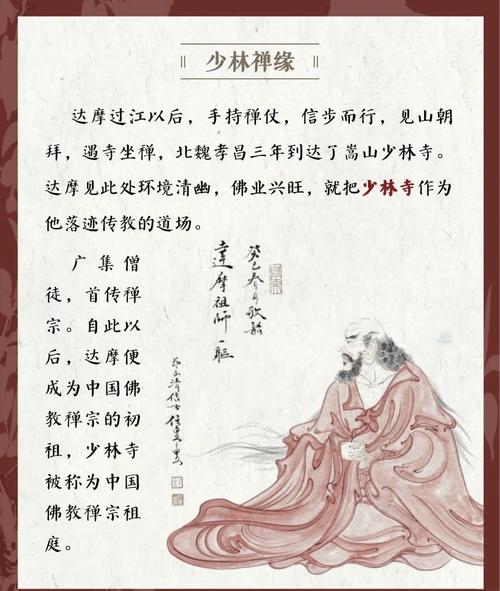 少林禅缘
达摩过江以后，手持禅仗，信步而行，见山朝
拜，遇寺坐禅，北魏孝昌三年到达了嵩山少林寺。
达摩见此处环境清幽，佛业兴旺，就把少林寺作为
他落迹传教的道场。
广集僧
徒，首传禅
宗。自此以
后，达摩便
成为中国佛
教禅宗的初
祖，少林寺
被称为中国
佛教禅宗祖
庭。
癸巳春月敬绘
达摩祖师一躯